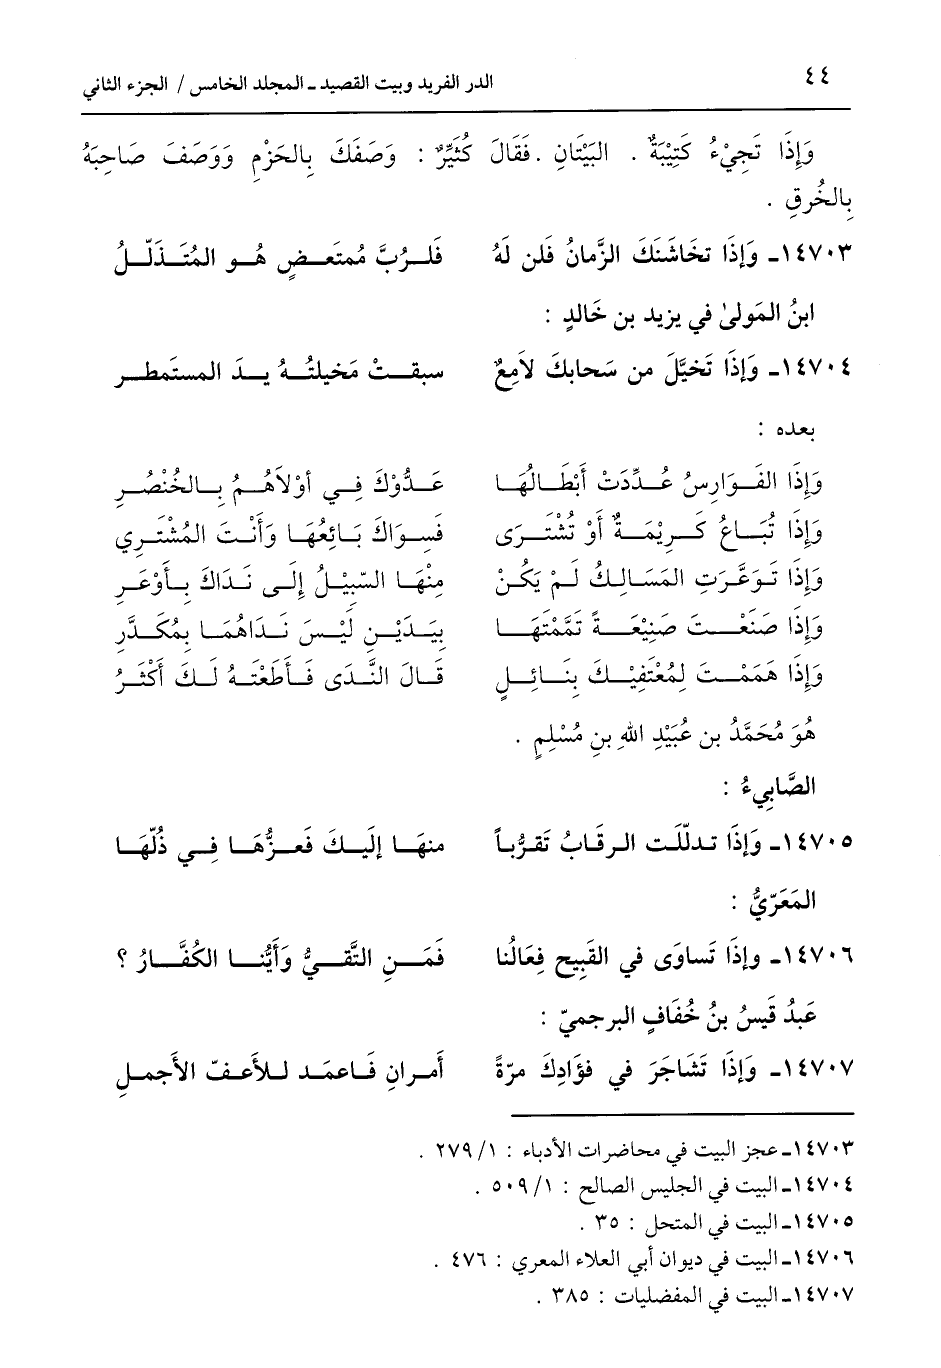 ٤٤
الدر الفريد وبيت القصيد ـ المجلد الخامس / الجزء الثاني
وَإِذَا تَجِيْءُ كَتِيْبَةٌ . البَيْتَانِ . فَقَالَ كُثَيِّرٌ : وَصَفَكَ بِالحَزْمِ وَوَصَفَ صَاحِبَهُ
بِالخُرقِ .
١٤٧٠٣ـ وَإِذَا تخَاشَنَكَ الزَّمانُ فَلن لَهُ فَلـرُبَّ مُمتَعـضٍ هُـو المُتَـذلّـلُ
ابنُ المَولىٰ في يزيد بن خَالدٍ :
١٤٧٠٤ـ وَإِذَا تَخيَّلَ من سَحابكَ لاَمِعٌ سبقـتْ مَخيلتُـهُ يـدَ المستمطـرِ
بعده :
وَإِذَا الفَـوَارِسُ عُـدِّدَتْ أَبْطَـالُهَـا عَـدُّوْكَ فِـي أوْلاَهُـمُ بِـالخُنْصُـرِ
وَإِذَا تُبَـاعُ كَـرِيْمَـةٌ أَوْ تُشْتَـرَى فَسِـوَاكَ بَـائِعُهَـا وَأَنْـتَ المُشْتَـرِي
وَإِذَا تَـوَعَّرَتِ المَسَـالِكُ لَـمْ يَكُـنْ مِنْهَـا السَّبِيْـلُ إِلَـى نَـدَاكَ بِـأَوْعَـرِ
وَإِذَا صَنَعْـتَ صَنِيْعَـةً تَمَّمْتَهَـا بِيَـدَيْـنِ لَيْـسَ نَـدَاهُمَـا بِمُكَـدَّرِ
وَإِذَا هَمَمْـتَ لِمُعْتَفِيْـكَ بِنَـائِـلٍ قَـالَ النَّـدَى فَـأَطَعْتَـهُ لَـكَ أَكْثَـرُ
هُوَ مُحَمَّدُ بن عُبَيْدِ اللهِ بنِ مُسْلِمٍ .
الصَّابِيءُ :
١٤٧٠٥ـ وَإِذَا تدلّلت الرقَـابُ تَقرُّباً منهَـا إلَيـكَ فَعـزُّهَـا فِـي ذُلّهَـا
المَعَرّيُّ :
١٤٧٠٦ـ وإِذَا تَساوَى في القَبِيحِ فِعَالُنا فَمَـنِ التَّقـيُّ وَأَيُّنـا الكُفَّـارُ ؟
عَبدُ قَيسُ بنُ خُفَافٍ البرجميّ :
١٤٧٠٧ـ وَإِذَا تَشَاجَرَ في فؤَادِكَ مرّةً أَمـرانِ فَاعمَـد لـلأعـفّ الأَجمـلِ
١٤٧٠٣ـ عجز البيت في محاضرات الأدباء : ١/ ٢٧٩ .
١٤٧٠٤ـ البيت في الجليس الصالح : ١/ ٥٠٩ .
١٤٧٠٥ـ البيت في المنتحل : ٣٥ .
١٤٧٠٦ـ البيت في ديوان أبي العلاء المعري : ٤٧٦ .
١٤٧٠٧ـ البيت في المفضليات : ٣٨٥ .